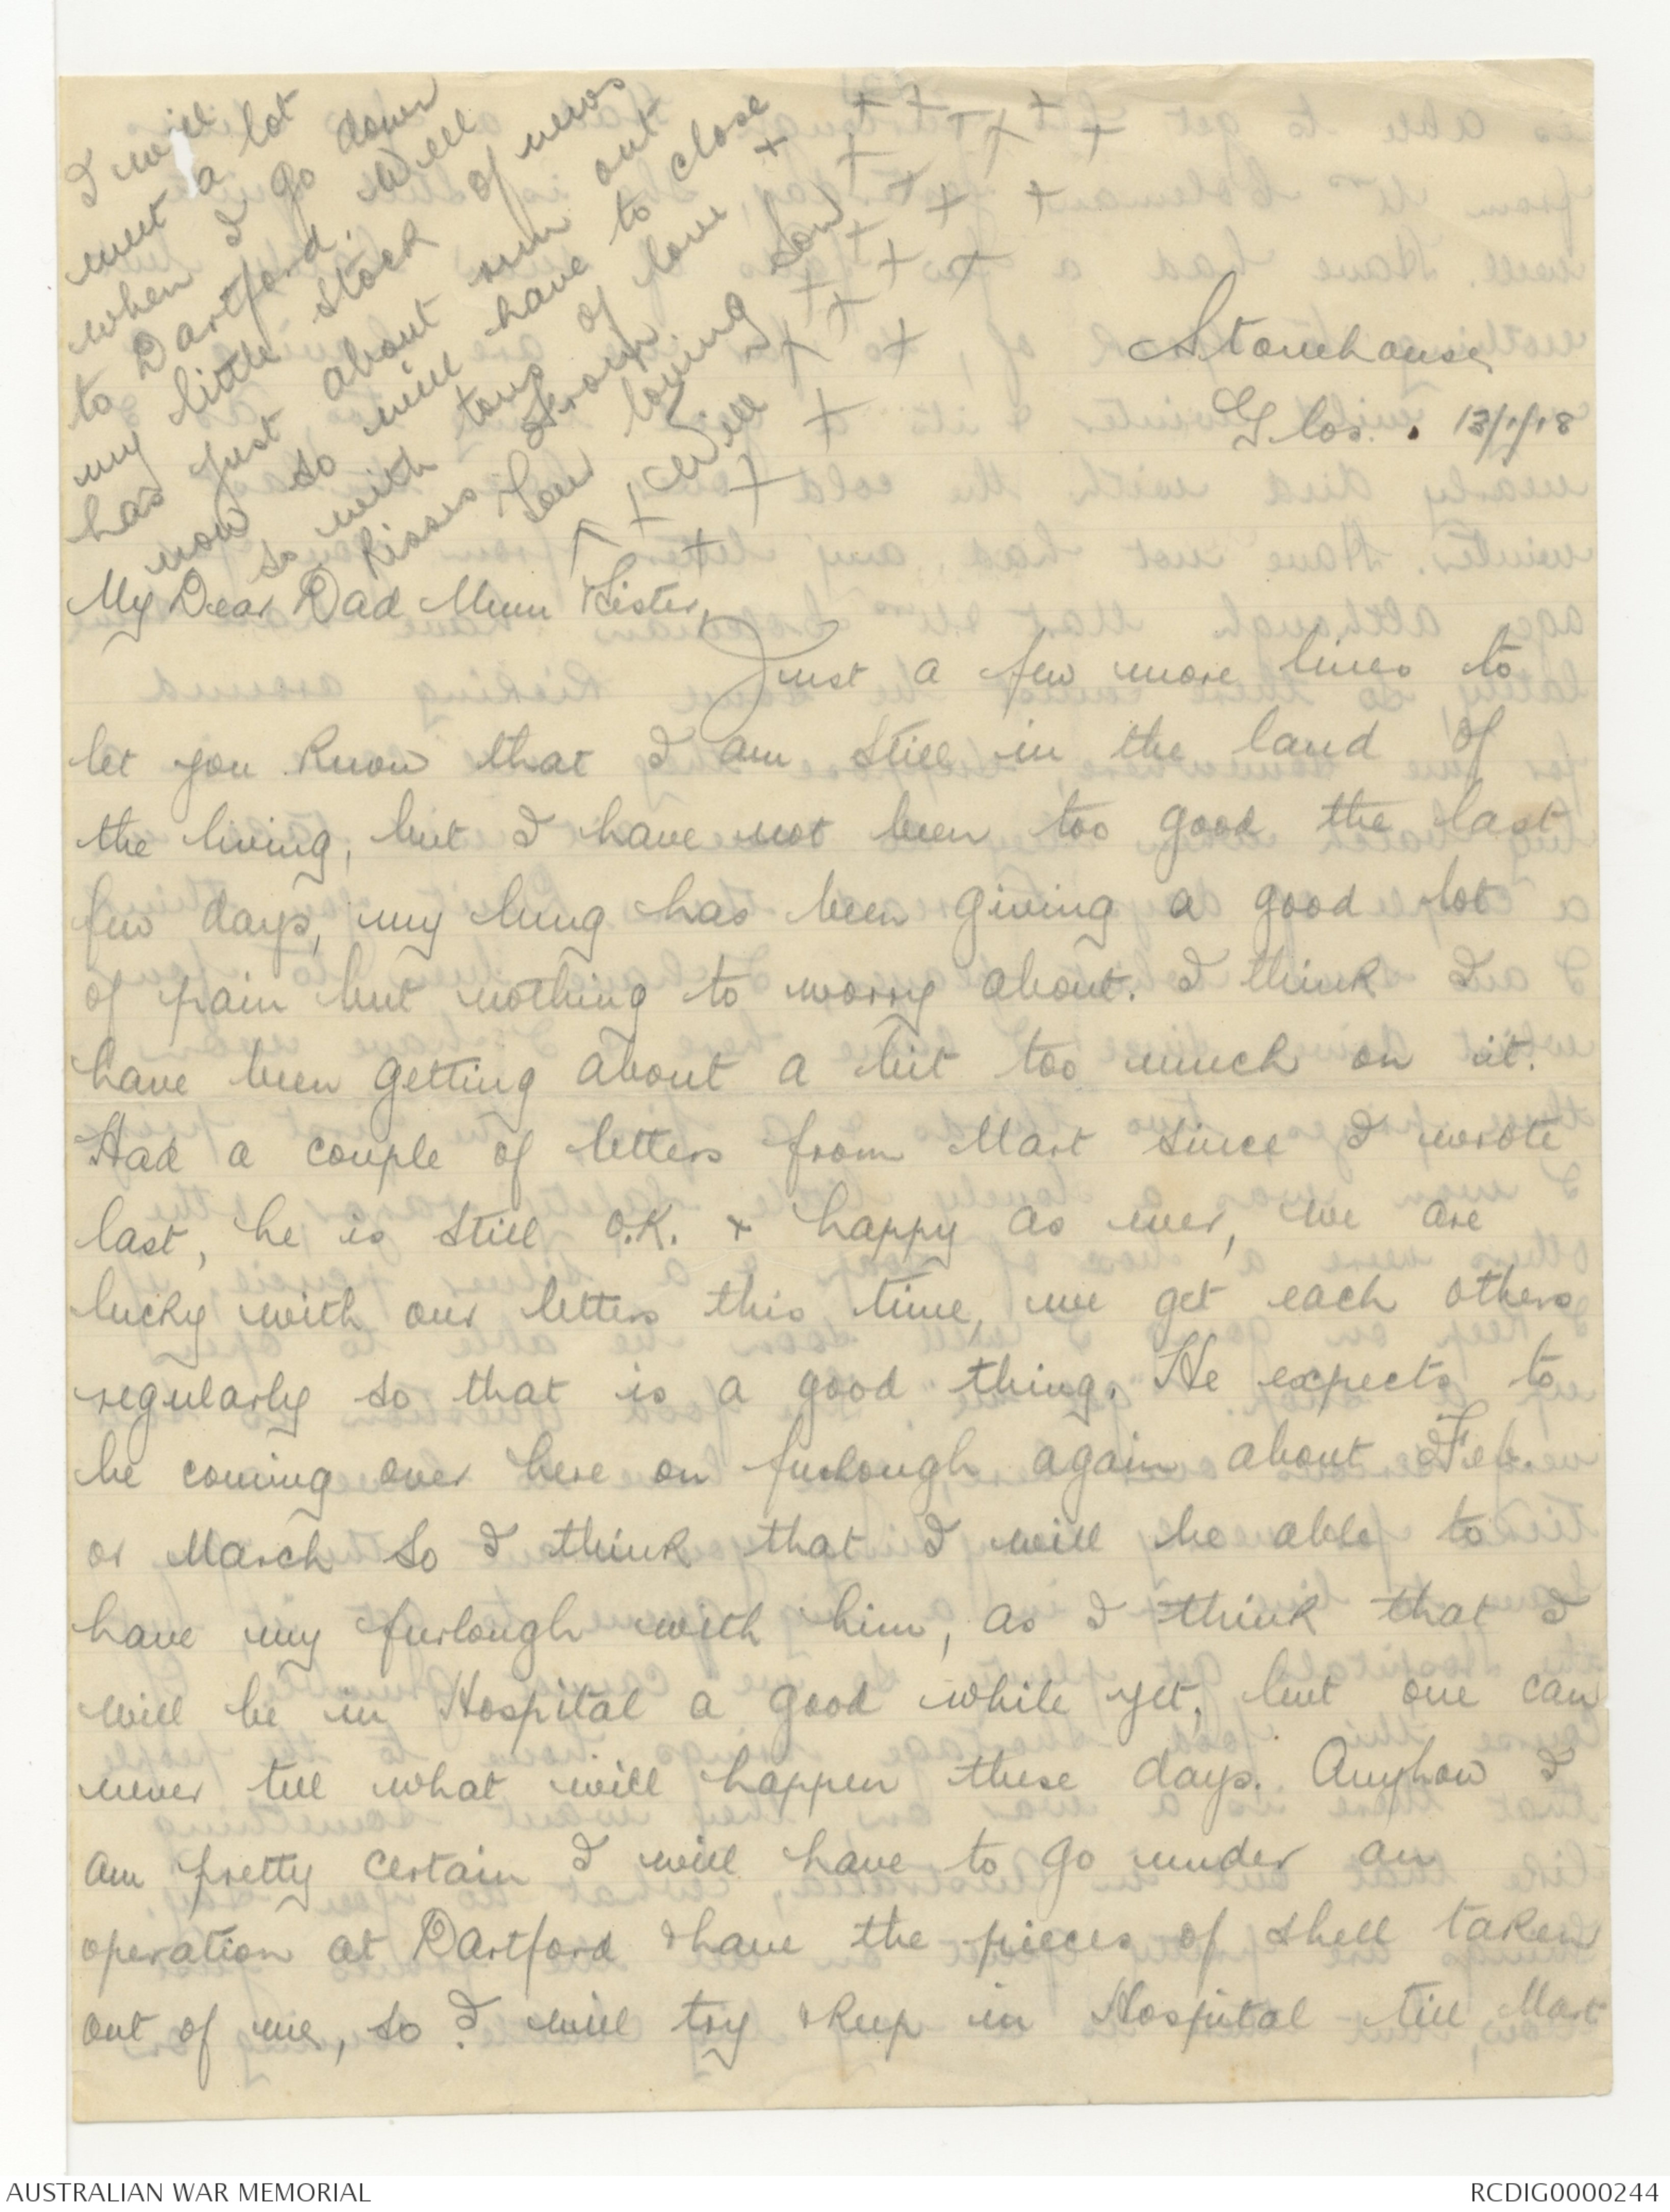 Stonehouse
Glos. 13/1/18
My Dear Dad Mum & Sister,
Just a few more lines to
let you know that I am still in the land of
the living, but I have not been too good the last
few days, my lung has been giving a good lot
of pain but nothing to worry about. I think I
have been getting about a bit too much on it.
Had a couple of letters from Mart since I wrote
last, he is still O.K. & happy as ever, we are
lucky with our letters this time, we get each others
regularly so that is a good thing. He expects to
be coming over here on furlough again about Feb.
or March so I think that I will be able to
have my furlough with him, as I think that I
will be in Hospital a good while yet, but one can
never tell what will happen these days. Anyhow I
am pretty certain I will have to go under an
operation at Dartford & have the pieces of shell taken
out of me, so I will try & keep in Hospital till Mart
I will
meet a lot
when I go down
to Dartford. Well
my little stock of news
has just about run out
now so will have to close
so with tons of love +
kisses from
Your loving Son
Will
AUSTRALIAN WAR MEMORIAL
RCDIG0000244